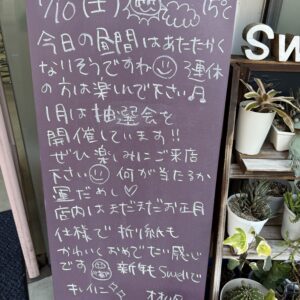 1/10(土) 15℃
今日の昼間はあたたかく
なりそうですね 3連休
の方は楽しんで下さい♫
1月は抽選会を
開催しています!!
ぜひ楽しみにご来店
下さい 何が当たるか
運だめし♡
店内はまだまだお正月
仕様で 折り紙も
かわいく おめでたい感じ
です 新年も Swellで
キレイに
Sw